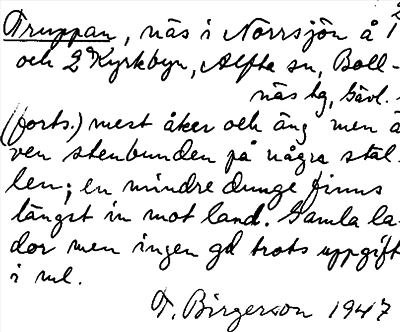 Truppan, näs i Norrsjön å 1
och 2 Kyrkbyn, Alfta sn, Boll-
näs tg, Gävl.
(forts.) mest åker och äng men ä
ven stenbunden på några stäl-
len; en mindre dunge finns
längst in mot land. Gamla la-
dor men ingen gd trots uppgift
i ml.
T. Birgerson 1947